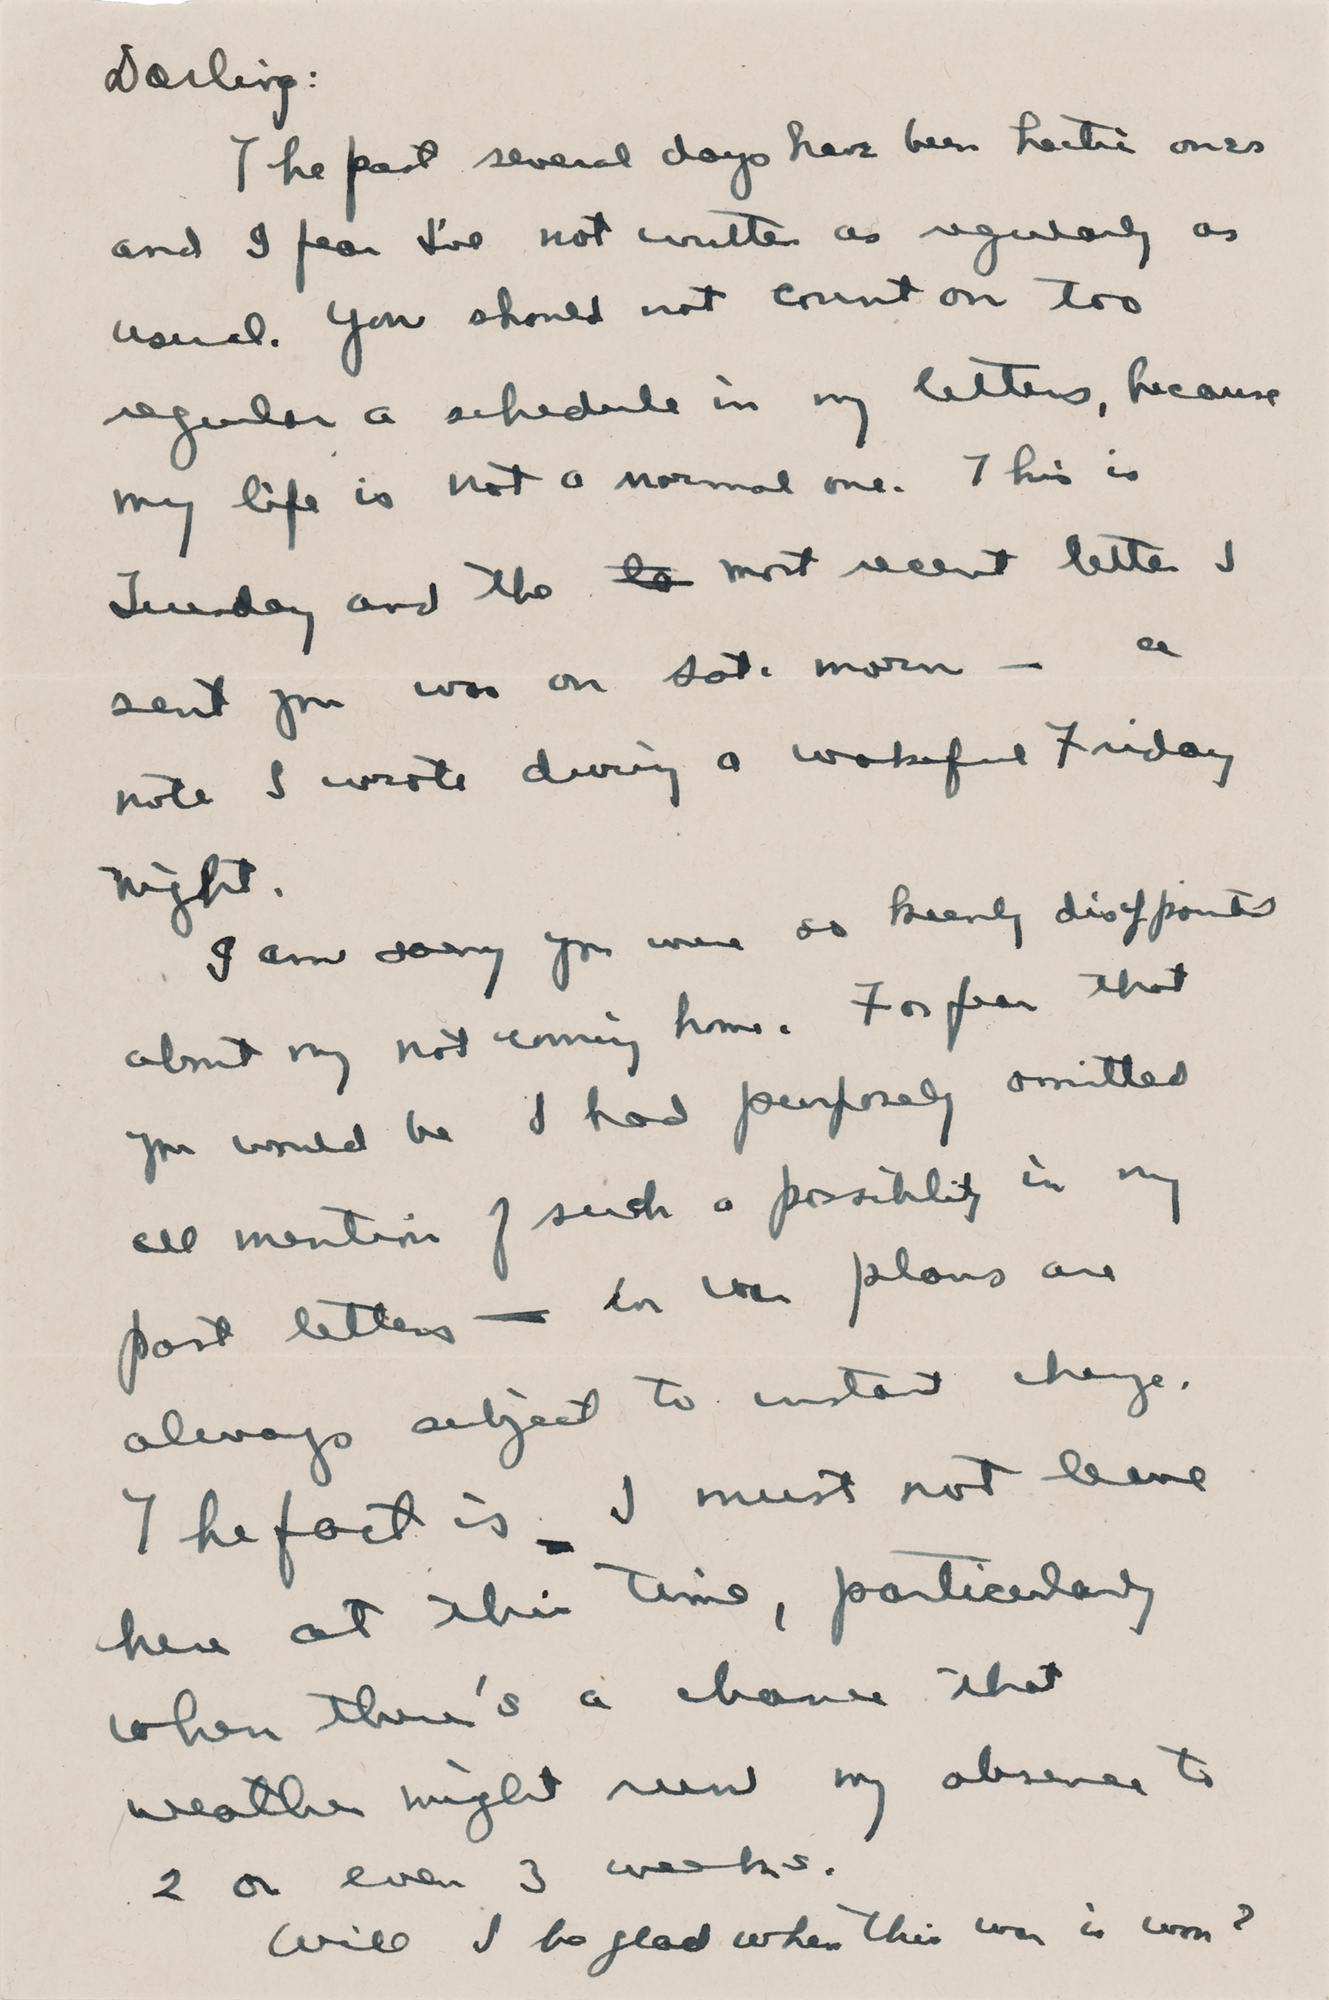 Darling:
The past several days have been hectic ones
and I fear I've not written as regularly as
usual. You should not count on too
regular a schedule in my letters, because
my life is not a normal one. This is
Tuesday and the la most recent letter I
sent you was on Sat. morn — a
note I wrote during a wakeful Friday
night.
I am sorry you were so keenly disappointed
about my not coming home. For fear that
you would be I had purposely omitted
all mention of such a possibility in my
past letters — in war plans are
always subject to instant change.
The fact is - I must not leave
here at this time, particularly
when there's a chance that
weather might run my absence to
2 or even 3 weeks.
Will I be glad when this war is won?